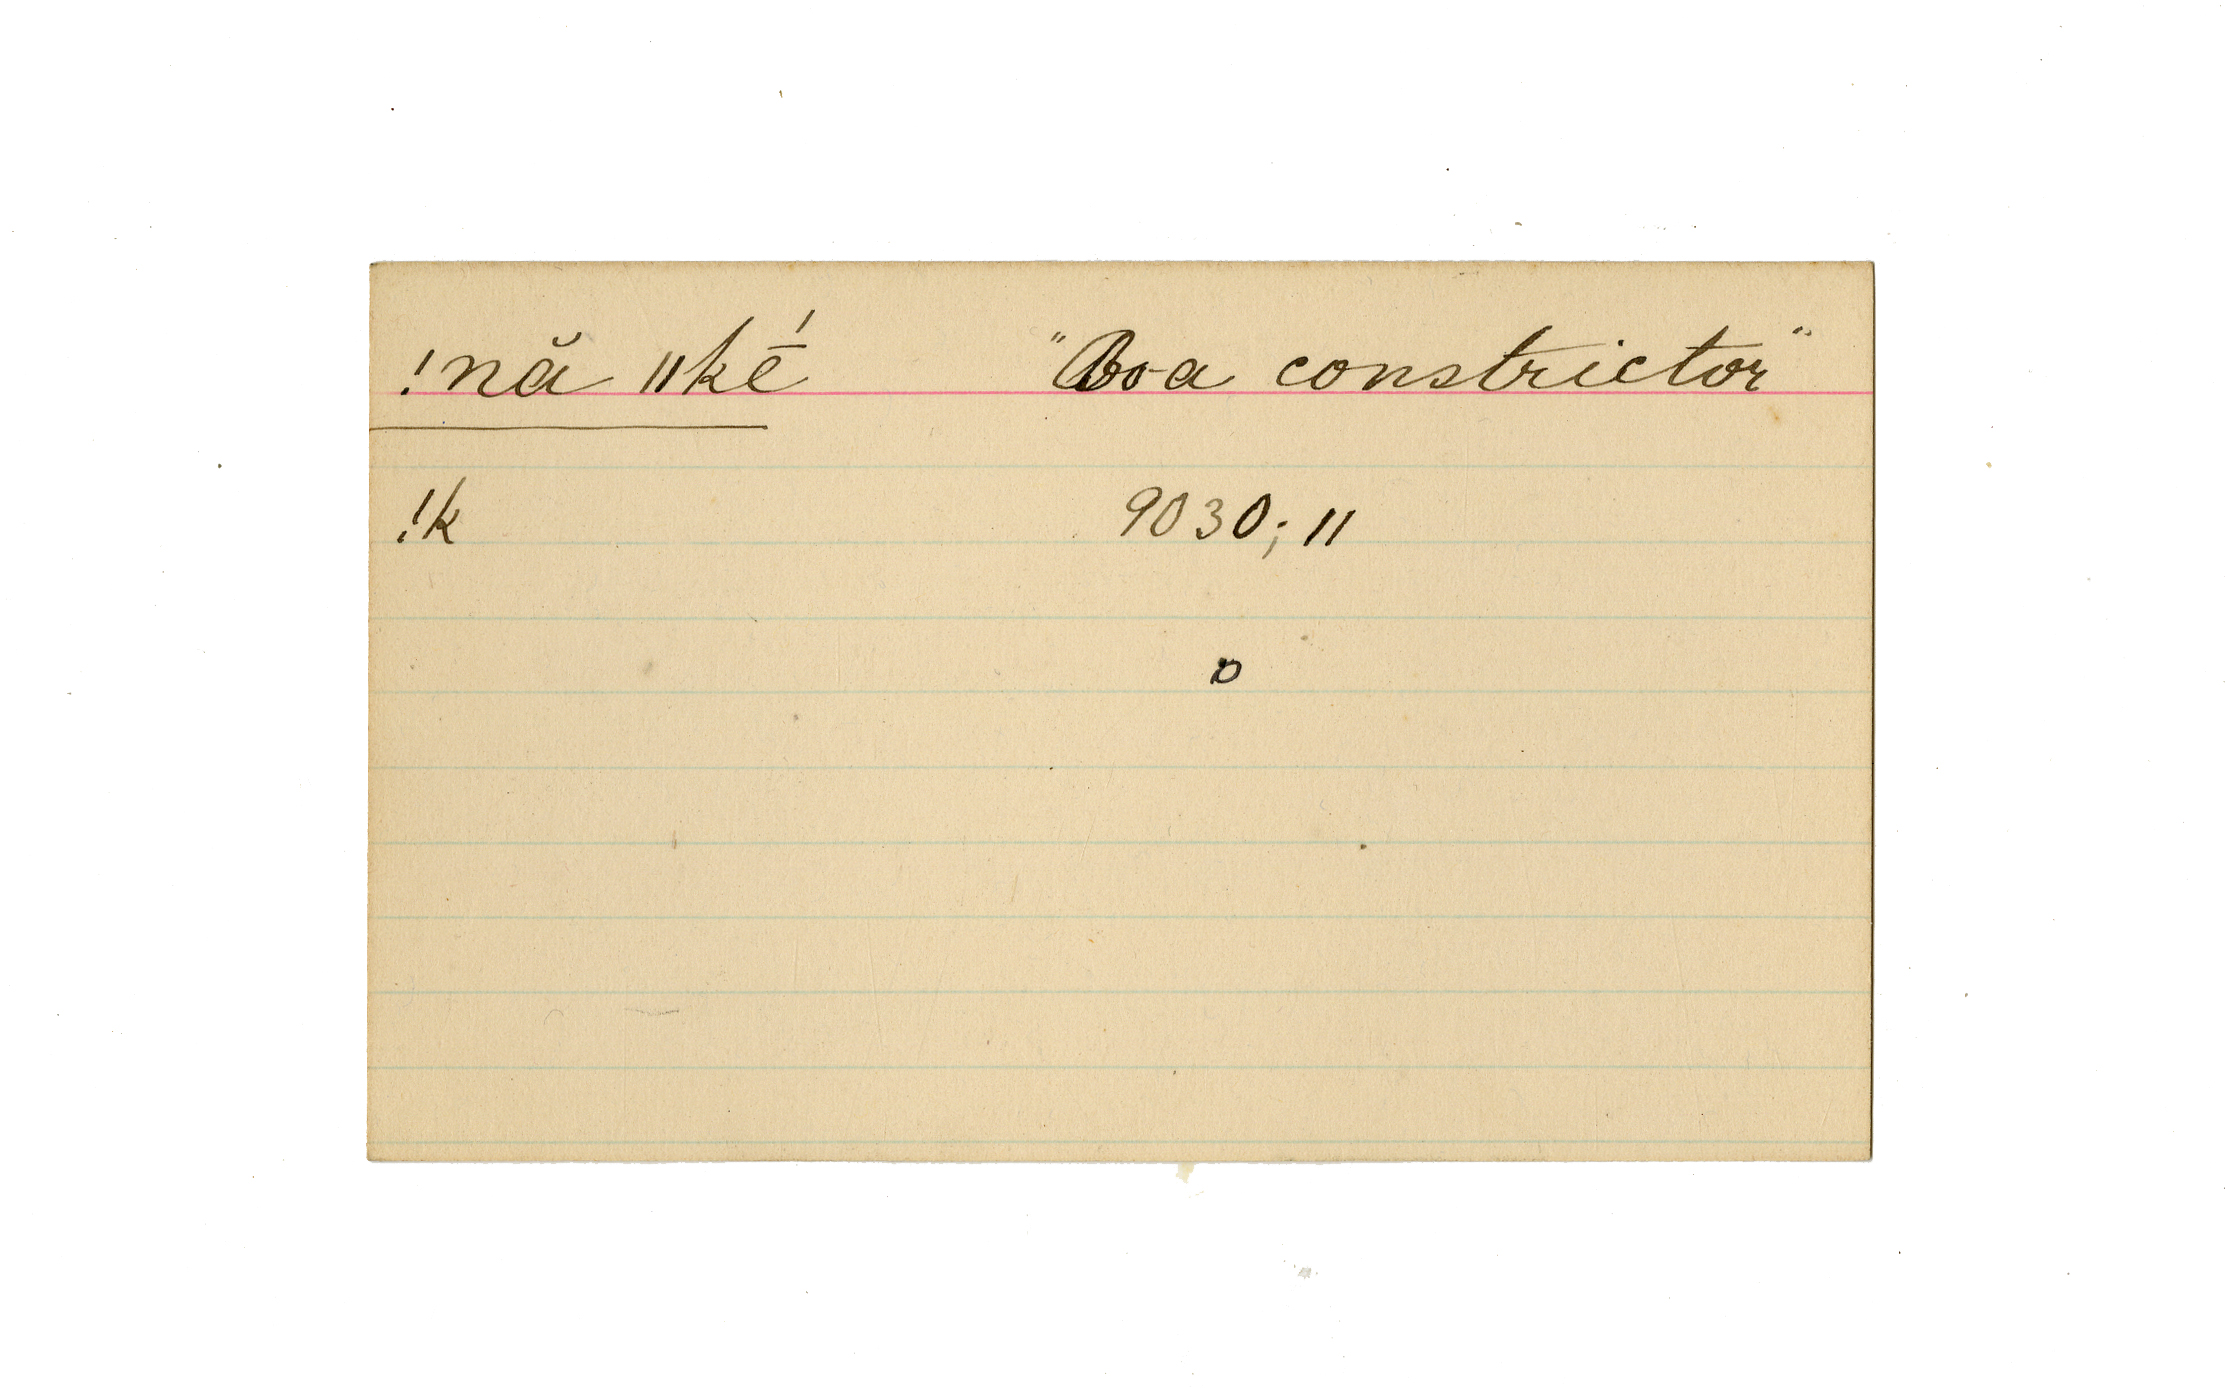 !nă ǁkḗ "Boa constrictor"
!k 9030; 11
o